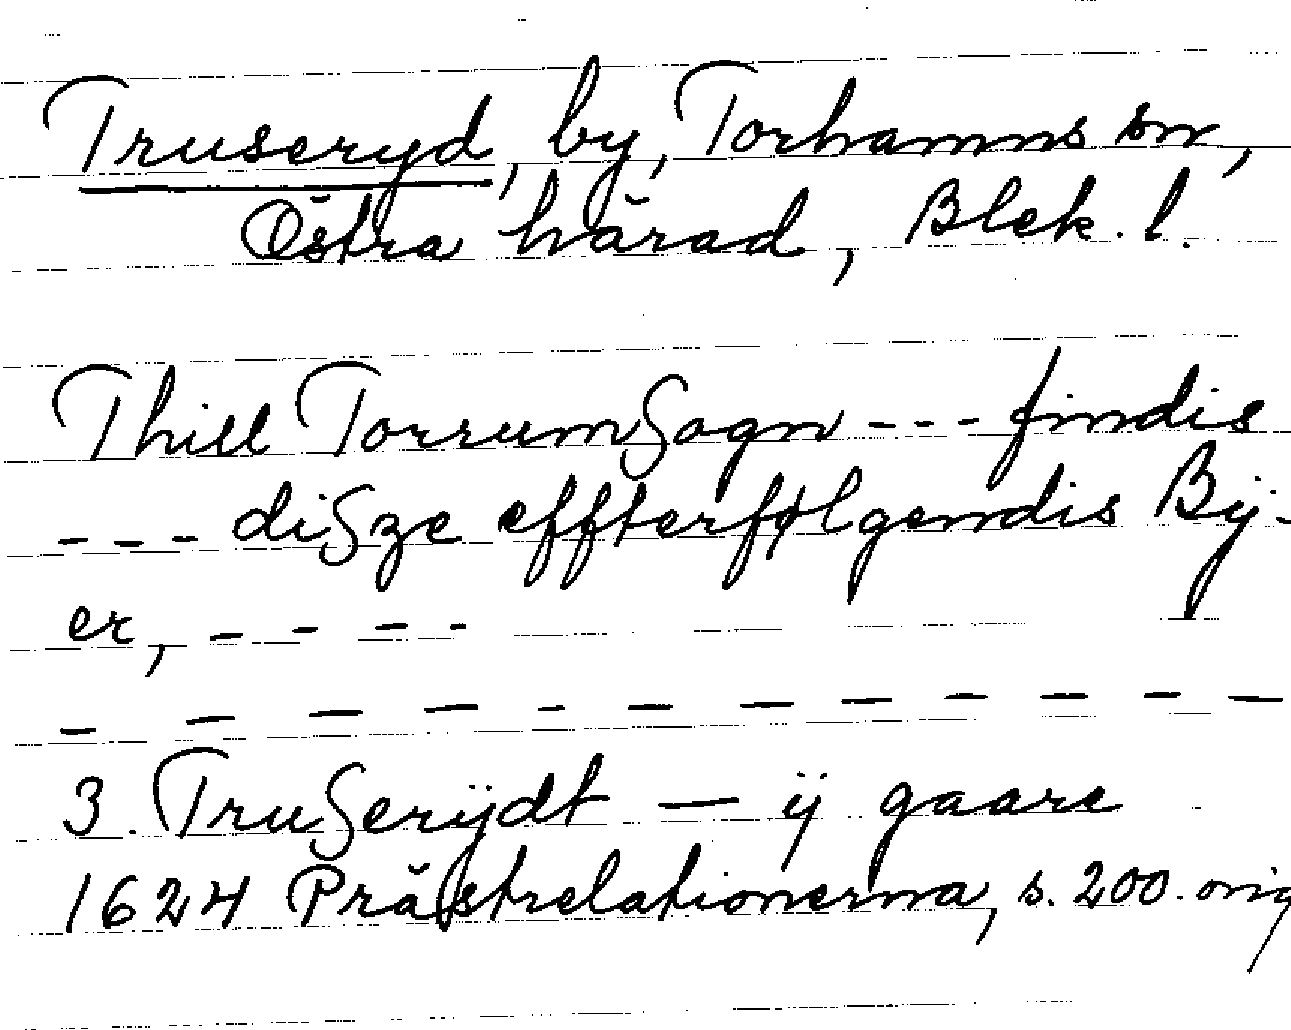 Truseryd, by, Torhamns sn,
Östra härad, Blek. l.
Thill TorrumSogn --- findis
--- diSze effterfølgendis Bÿ-
er, ----
- - - - - - - - - - - - -
3. TruSerÿdt — ij gaare
1624 Prästrelationerna, s. 200. orig